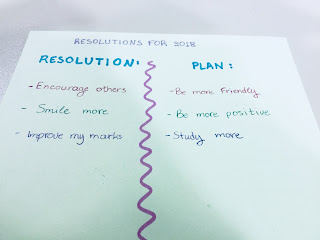 RESOLUTIONS FOR 2018
RESOLUTION:
- Encourage others
- Smile more
- Improve my marks
PLAN:
- Be more friendly
- Be more positive
- Study more